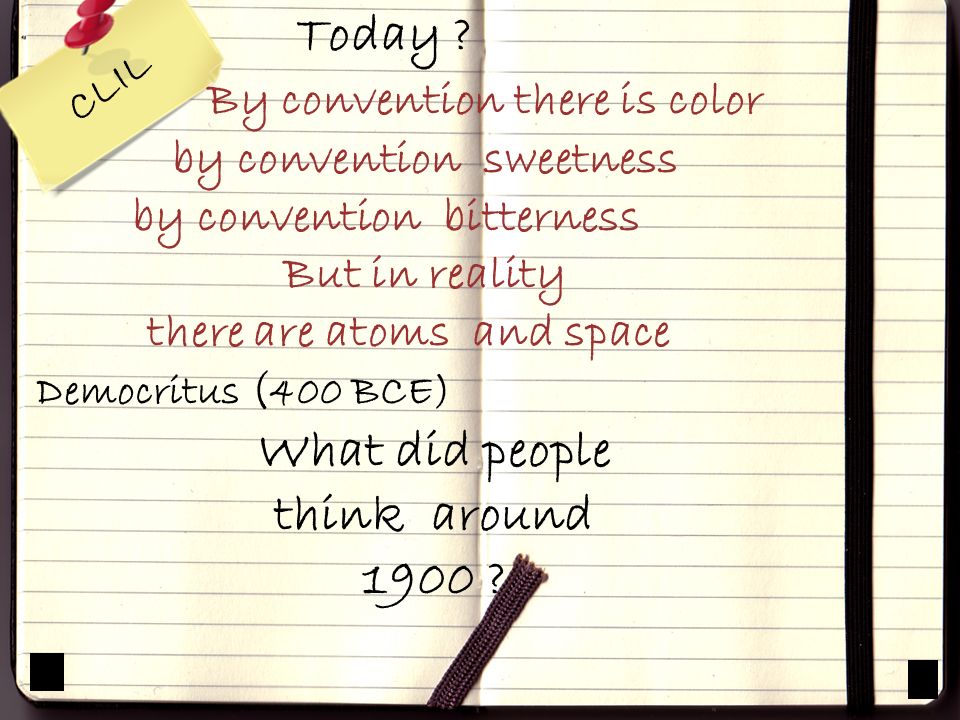 Today ?
CLIL
By convention there is color
by convention sweetness
by convention bitterness
But in reality
there are atoms and space
Democritus (400 BCE)
What did people
think around
1900 ?